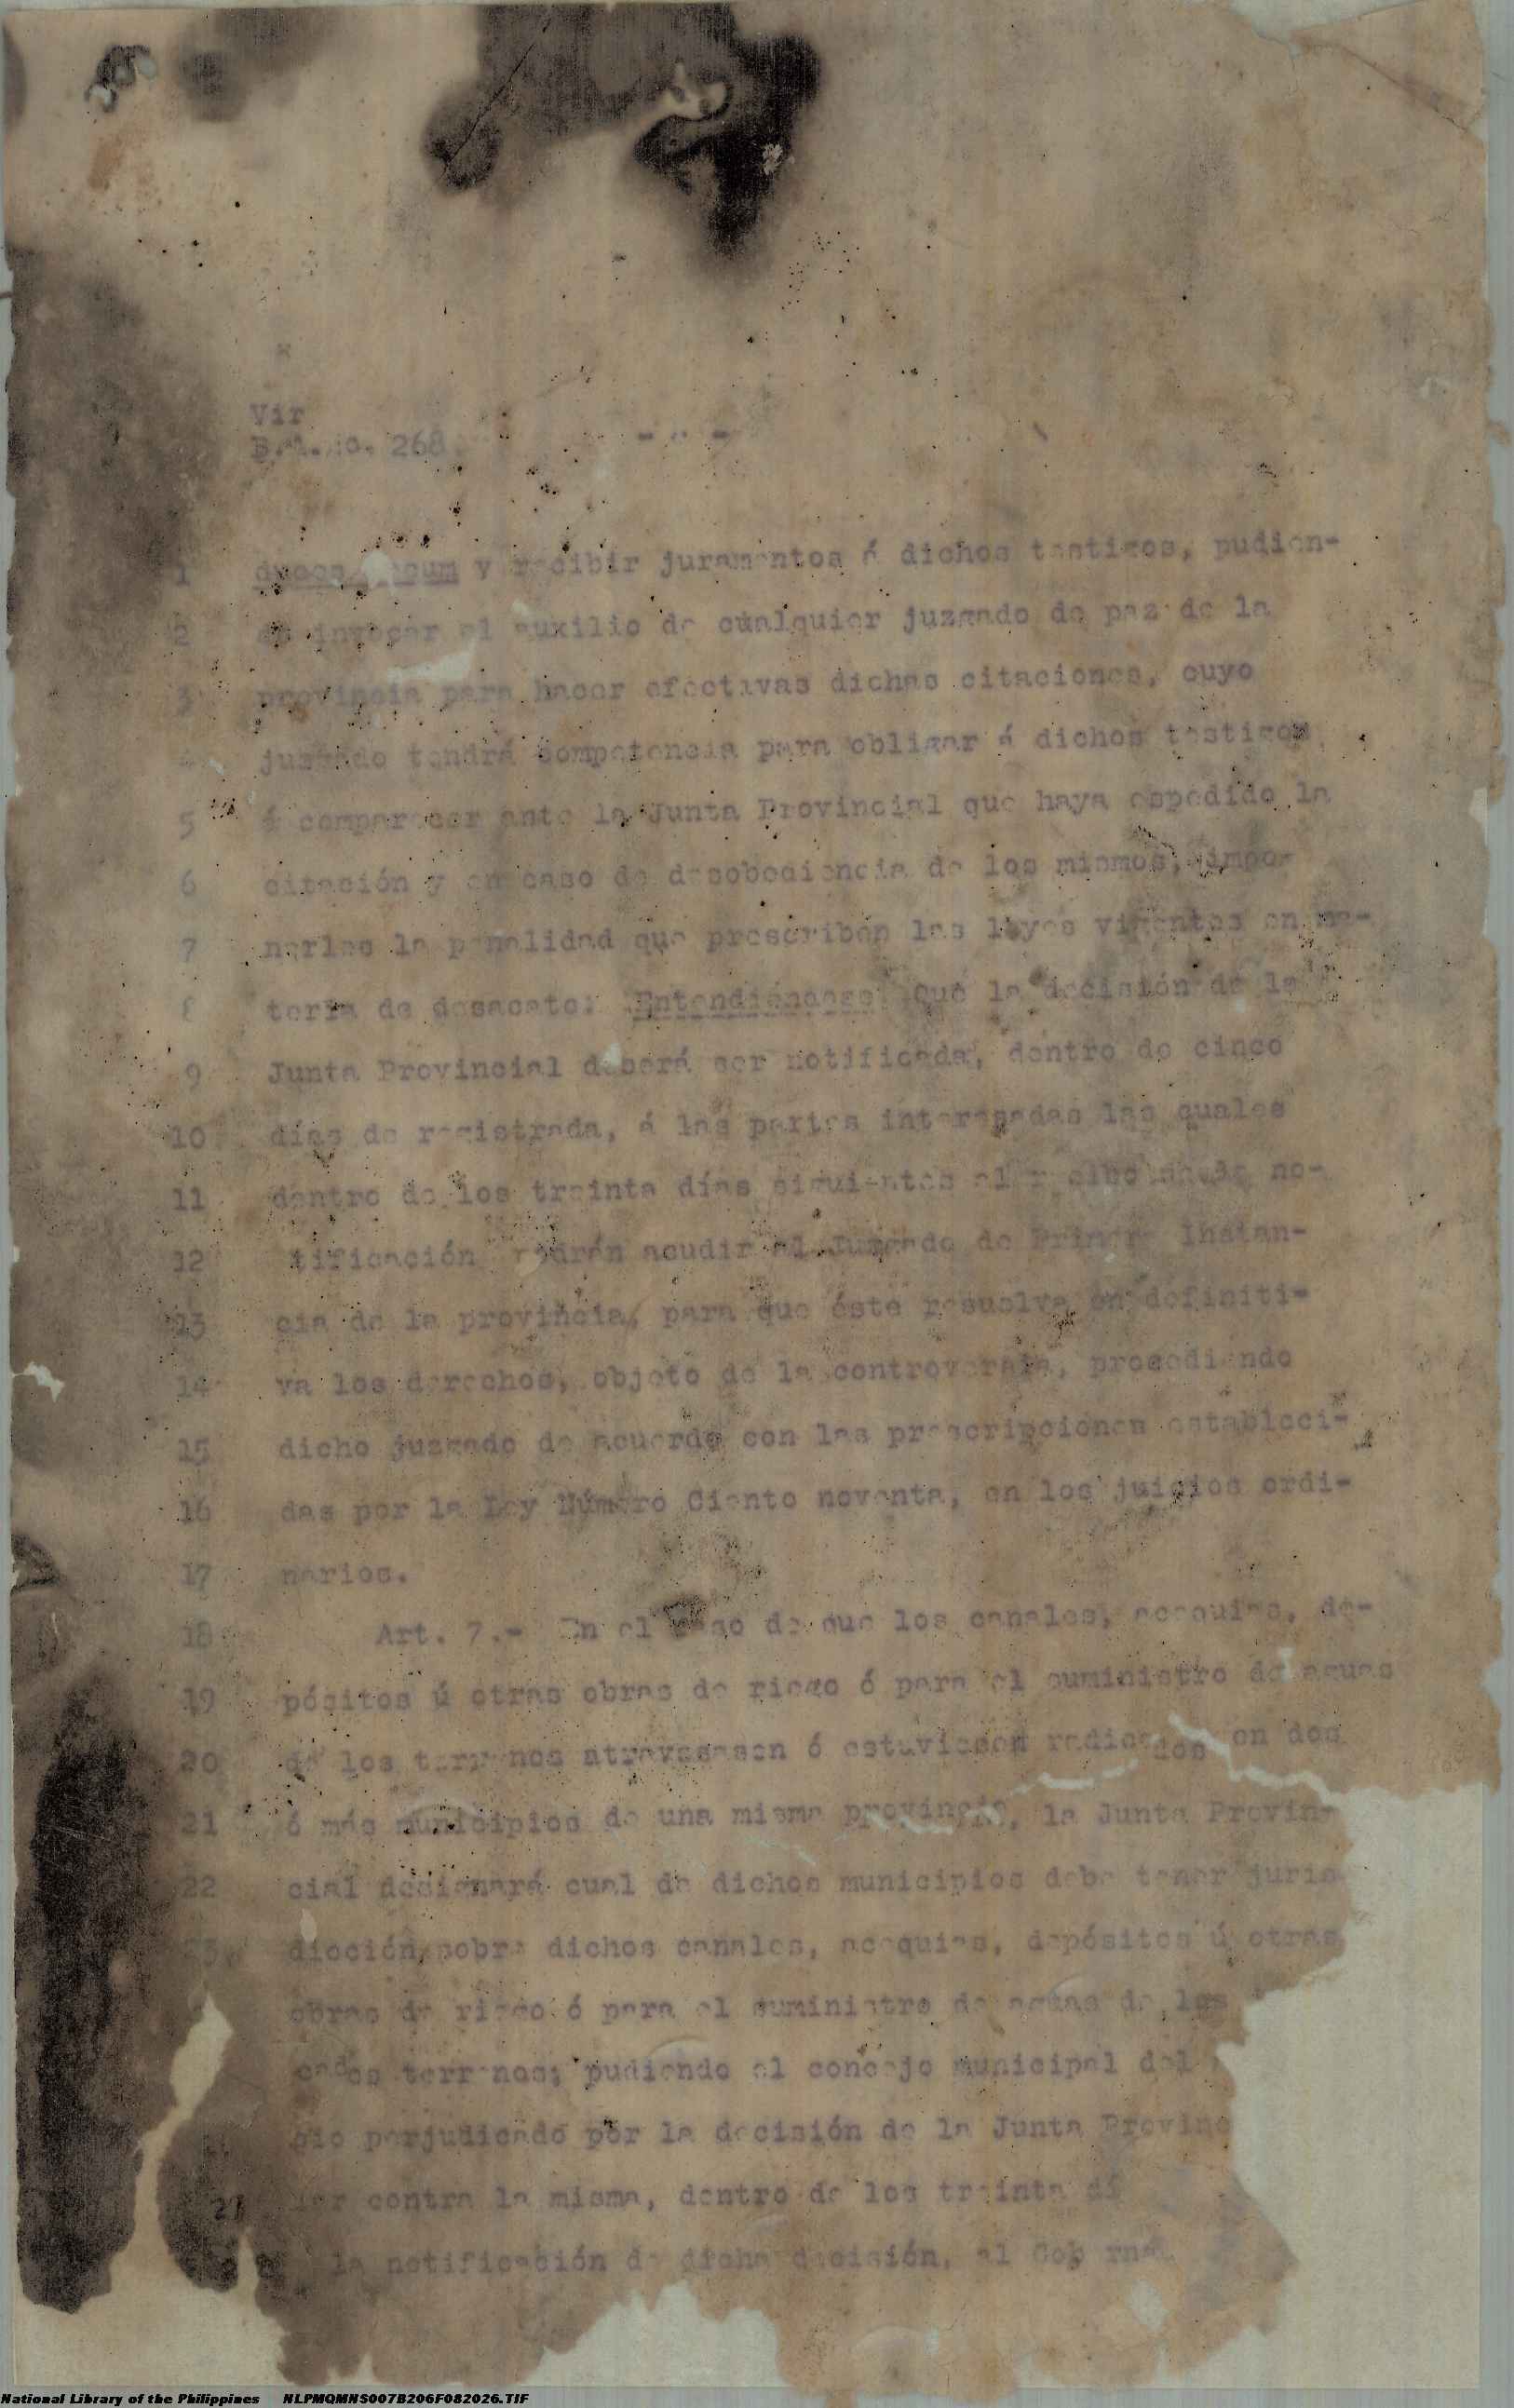 Vir
B.A. No. 268
1 duces tecum y recibir juramentos á dichos testigos, pudien-
2 do invocar el auxilio de cualquier juzgado de paz de la
3 provincia para hacer efectivas dichas citaciones, cuyo
juzgado tendrá competencia para obligar á dichos testigos
5 á comparecer ante la Junta Provincial que haya espedido la
6 citación y en caso de desobediencia de los mismos, impo-
7 nerles la penalidad que prescriben las leyes vigentes en ma-
8 teria de desacato: Entendiéndose, Que la decisión de la
9 Junta Provincial deberá ser notificada, dentro de cinco
10 días de registrada, á las partes interesadas las quales
11 dentro de los treinta días siguientes al no-
12 tificación podrán acudir al Juzgado de Primera Instan-
13 cia de la provincia, para que éste resuelva en definiti-
14 va los derechos, objeto de la controversia, procediendo
15 dicho juzgado de acuerdo con las prescripciones estableci-
16 das por la Ley Número Ciento noventa, en los juicios ordi-
17 narios.
18 Art. 7.- En el caso de que los canales, acequias, de-
19 pósitos ú otras obras de riego ó para el suministro de aguas
20 de los terrenos atravesasen ó estuviesen radicados en dos
21 ó más municipios de una misma provincia, la Junta Provin-
22 cial designará cual de dichos municipios debe tener juris-
23 dicción sobre dichos canales, acequias, depósitos ú otras
obras de riego ó para el suministro de aguas de los
cados terrenos; pudiendo el concejo municipal del
pio perjudicado por la decisión de la Junta Provinc
27 lar contra la misma, dentro de los treinta dí
la notificación de dicha decisión, al Gobernad
National Library of the Philippines NLPMQMNS007B206F082026.TIF